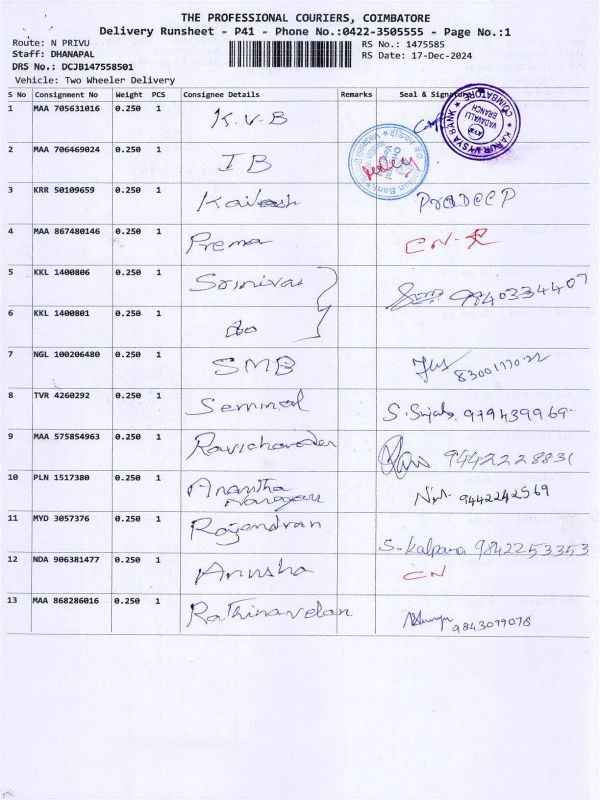 THE PROFESSIONAL COURIERS, COIMBATORE
Delivery Runsheet - P41 - Phone No.:0422-3505555 - Page No.:1
Route: N PRIVU RS No.: 1475585
Staff: DHANAPAL RS Date: 17-Dec-2024
DRS No.: DCJB147558501
Vehicle: Two Wheeler Delivery
S No Consignment No Weight PCS Consignee Details Remarks Seal & Signature
1 MAA 705631016 0.250 1 K.V.B
KARUR VYSYA BANK COIMBATORE
VADAVALLI
BRANCH
2 MAA 706469024 0.250 1 IB
3 KRR 50109659 0.250 1 Kailash PraDeeP
4 MAA 867480146 0.250 1 Prema CN-R
5 KKL 1400806 0.250 1 Srinivas 9840334407
6 KKL 1400801 0.250 1 do
7 NGL 100206480 0.250 1 SMB
8 TVR 4260292 0.250 1 S. Sujata 979439969
9 MAA 575854963 0.250 1 Ravichander 94442228831
10 PLN 1517380 0.250 1 Anantha
Narayan 9442242569
11 MYD 3057376 0.250 1 Rajendran S. Kalpana 9842253353
12 NDA 906381477 0.250 1 Anusha CN
13 MAA 868286016 0.250 1 Rathinavelan 9843099078